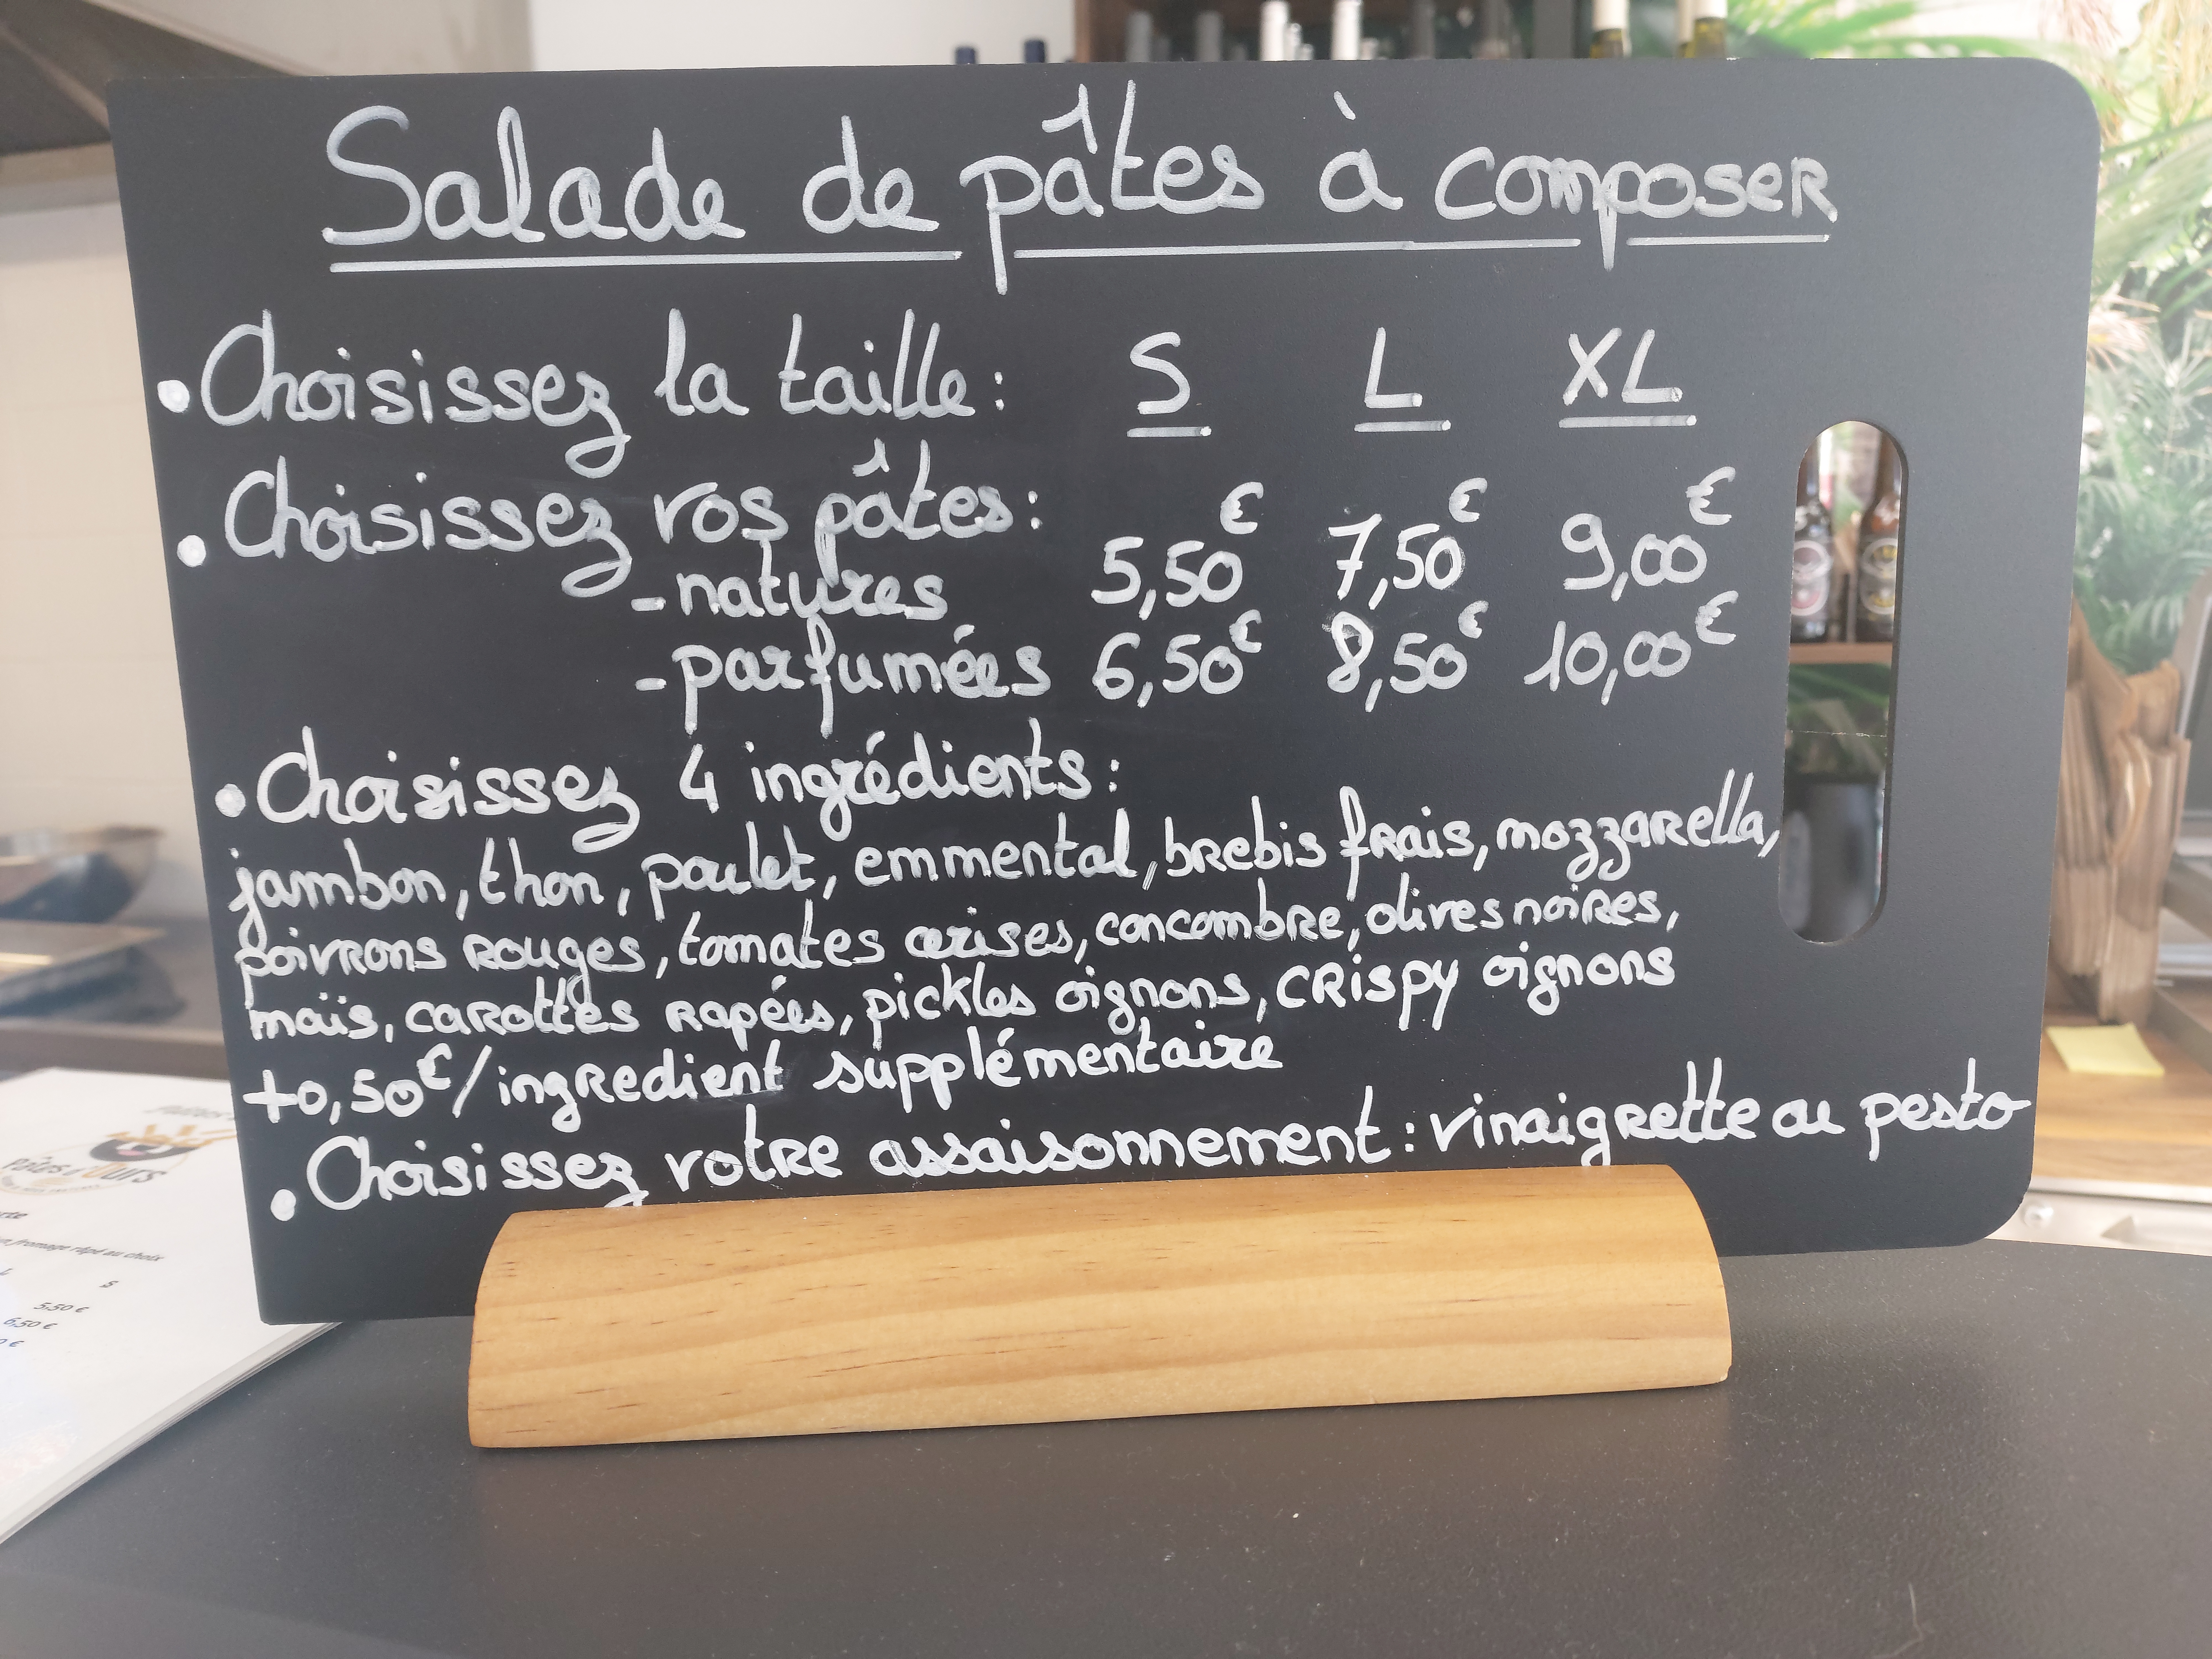 Salade de pâtes à composer
• Choisissez la taille : S L XL
• Choisissez vos pâtes :
- natures 5,50€ 7,50€ 9,00€
- parfumées 6,50€ 8,50€ 10,00€
• Choisissez 4 ingrédients :
jambon, thon, poulet, emmental, brebis frais, mozzarella,
poivrons rouges, tomates cerises, concombre, olives noires,
maïs, carottes rapées, pickles oignons, crispy oignons
+0,50€/ingredient supplémentaire
• Choisissez votre assaisonnement : vinaigrette ou pesto
fromage râpé au choix
L S
5,50 €
6,50 €